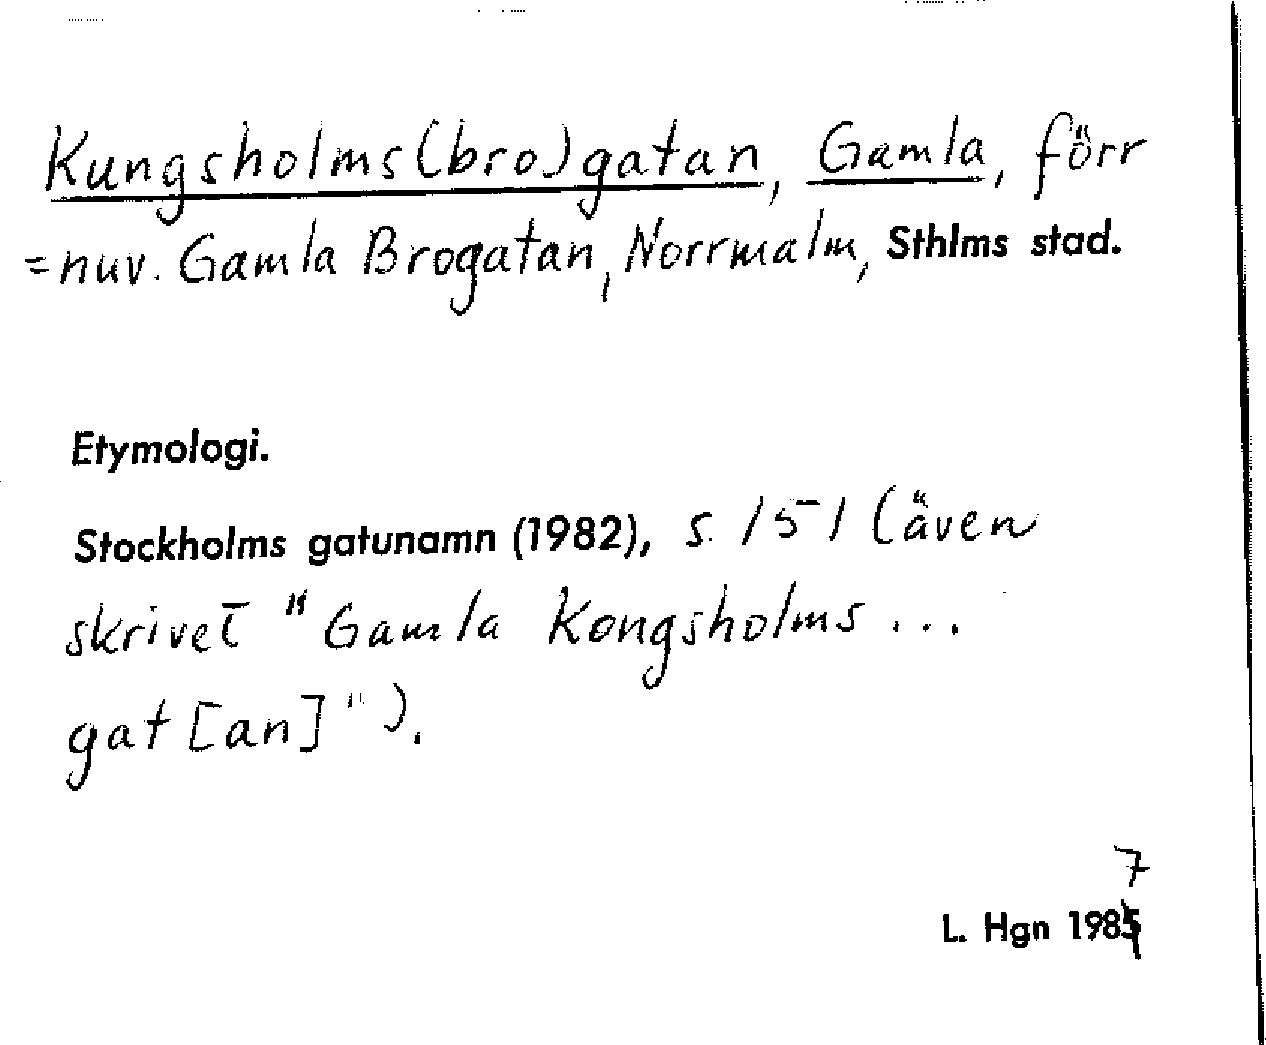 Kungsholms(bro)gatan, Gamla, förr
=nuv. Gamla Brogatan, Norrmalm, Sthlms stad.
Etymologi.
Stockholms gatunamn (1982), s. 151 (även
skrivet "Gamla Kongsholms ...
gat[an]").
7
L. Hgn 1985